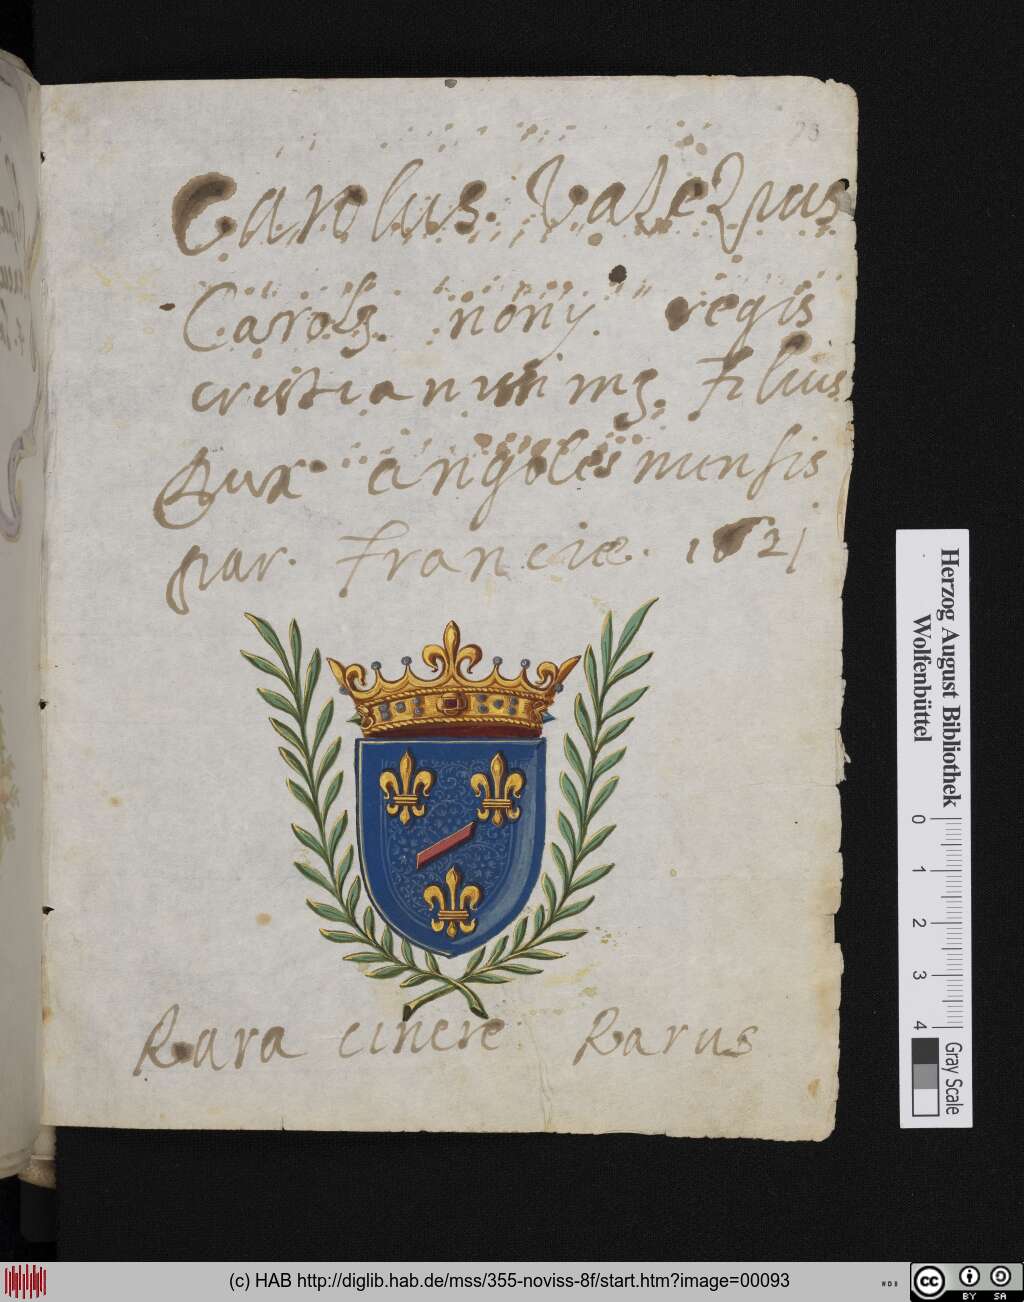 23
Carolus Valezius
Carols nony regis
cristianissimi filius
Dux angolesmensis
par. franciæ. 1621
Rara cinere Rarus
Herzog August Bibliothek
Wolfenbüttel
0 1 2 3 4
Gray Scale
(c) HAB http://diglib.hab.de/mss/355-noviss-8f/start.htm?image=00093
cc BY SA